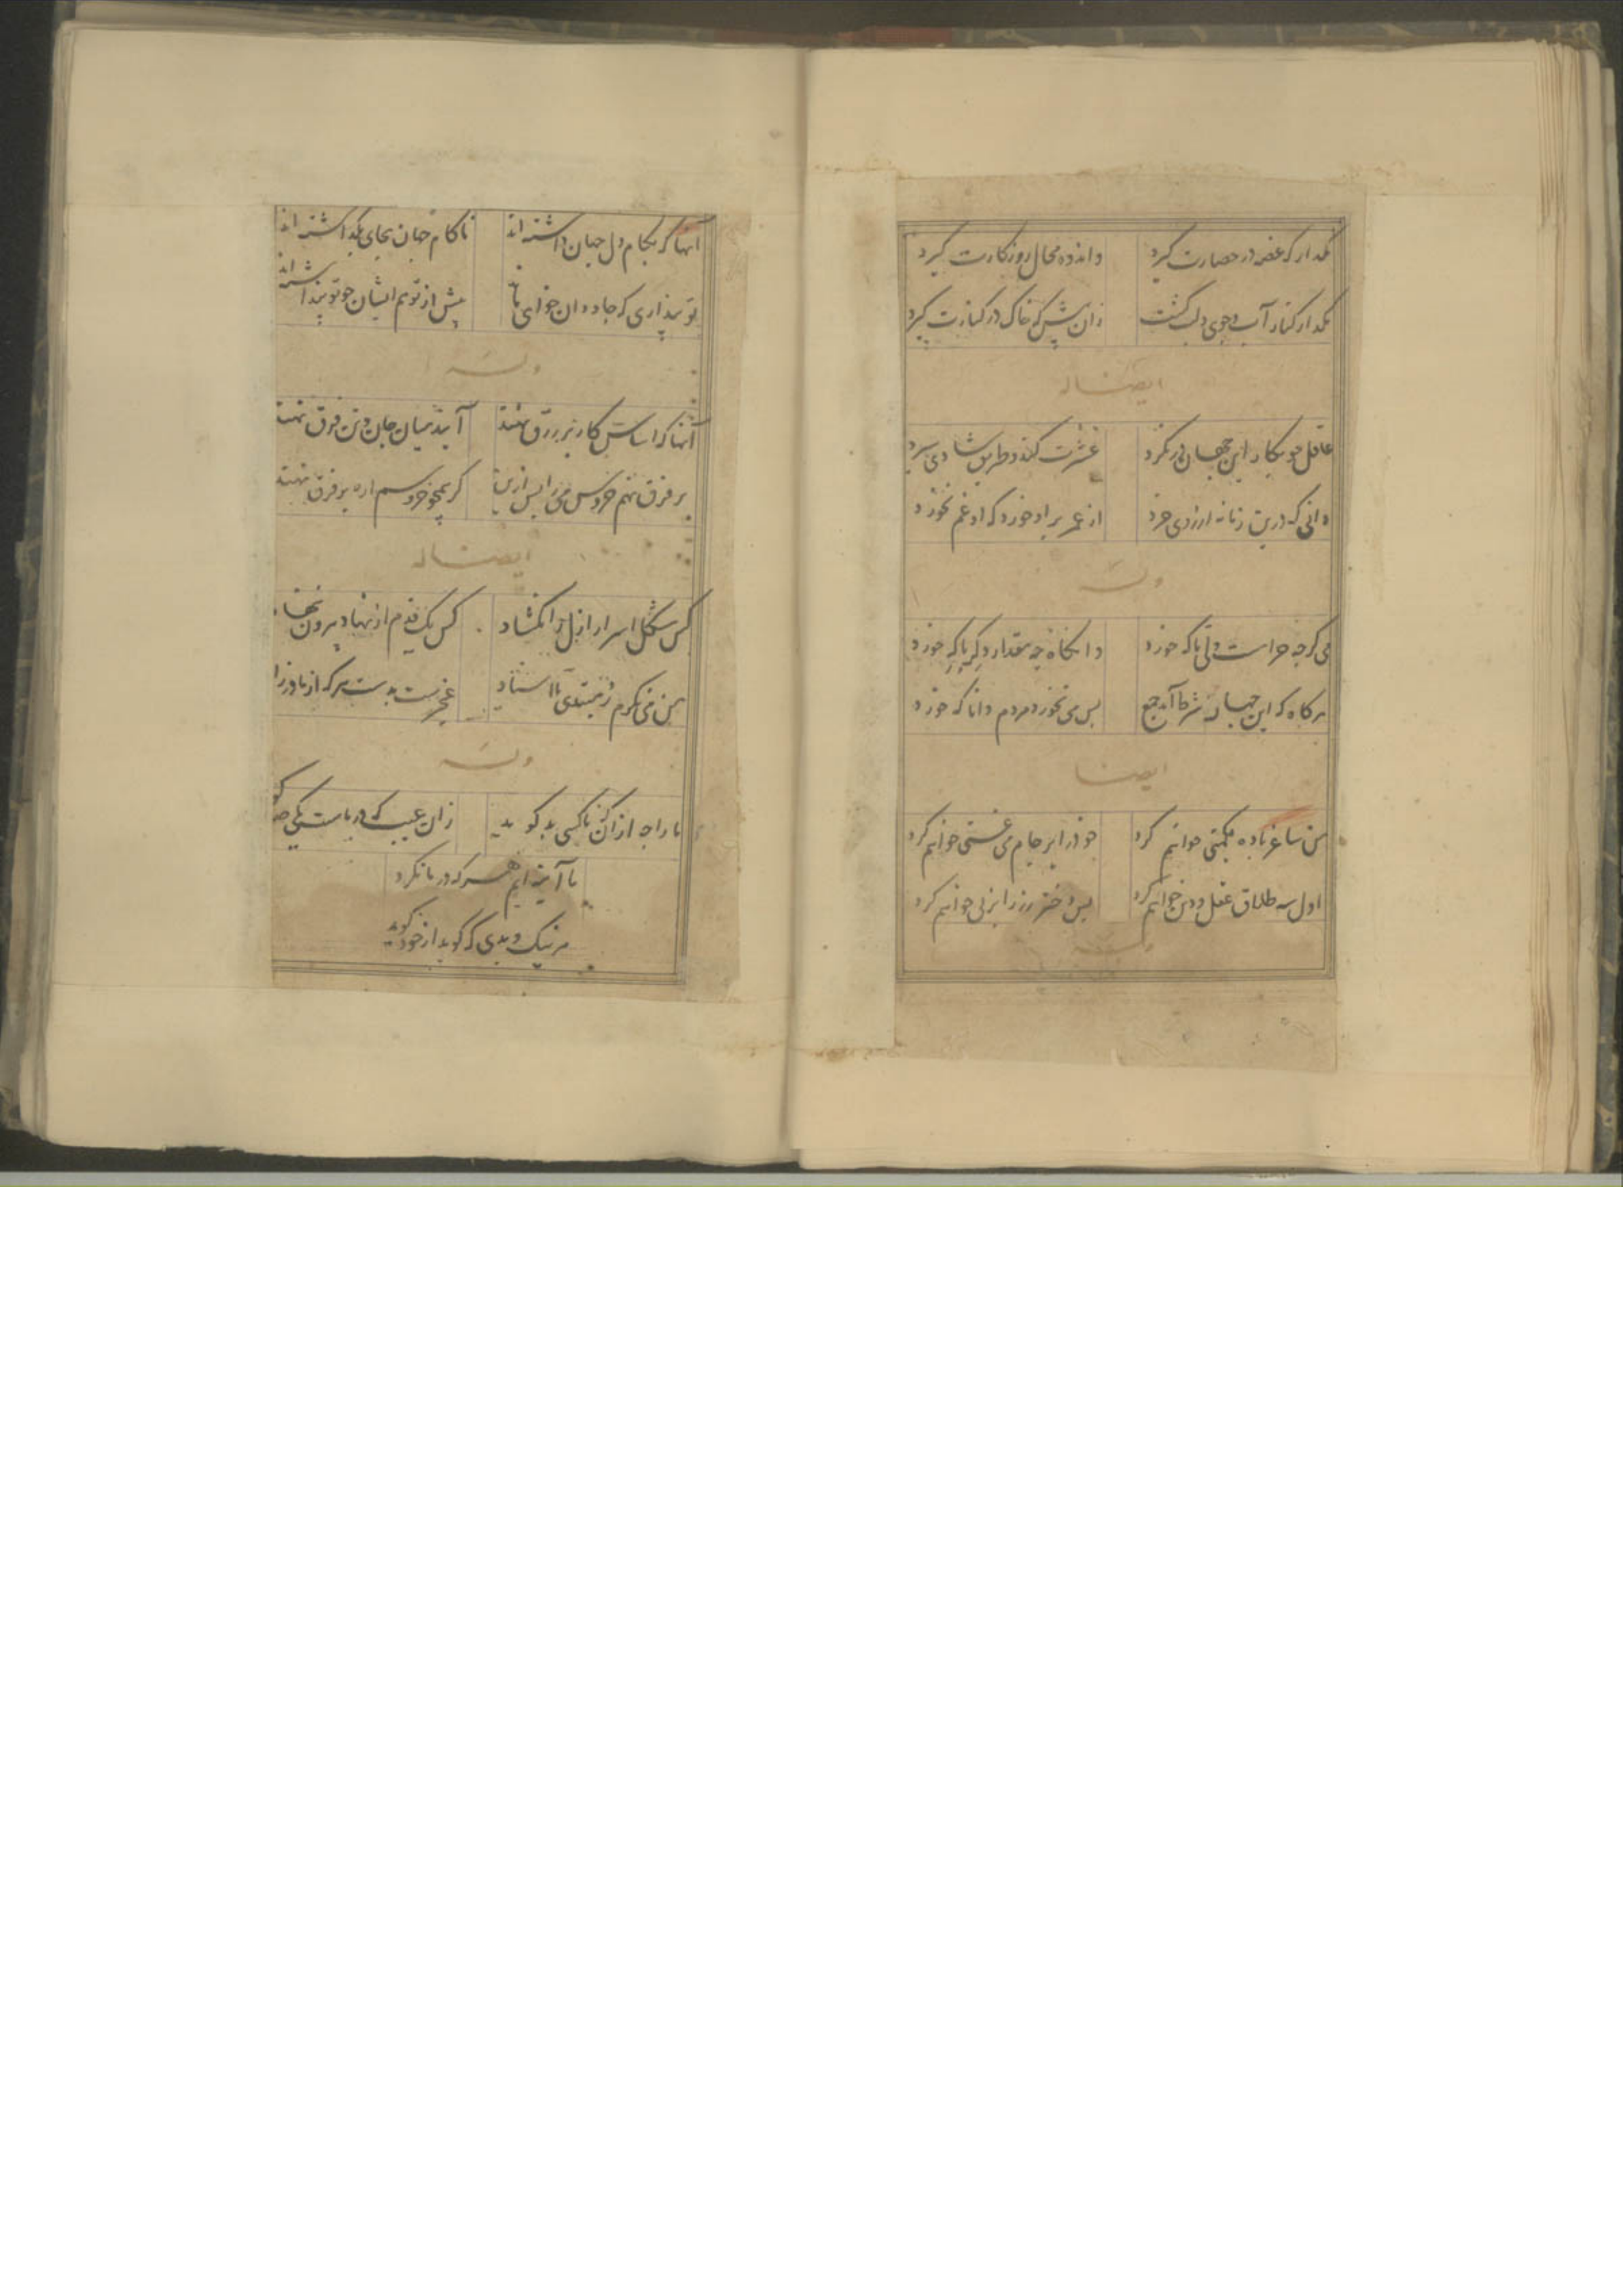 نگذار که غصه در حصارت گیرد واندوه محال روزگارت گیرد
نگذار کنار آب و جوی و لب کشت زان پیش که خاک در کنارت گیرد
ایضا له
عاقل چو بکار این جهان در نگرد عشرت کند و طریق شادی سپرد
دانی که درین زمانه ارزدی خرد از عمر بر او خورد که او غم نخورد
وله
می گرچه حرامست ولی تا که خورد وانگاه چه مقدار و دگر با که خورد
هرگاه که این چهار شرط آمد جمع پس می نخورد مردم دانا که خورد
ایضا
من ساغر باده یکمنی خواهم کرد خود را بر جام می غنی خواهم کرد
اول سه طلاق عقل و دین خواهم کرد پس دختر رز را بزنی خواهم کرد
وله
آنها که بکام دل جهان داشته اند ناکام جهان بجای بگذاشته اند
تو پنداری که جاودان خواهی ماند پیش از تو هم ایشان چو تو پنداشته اند
وله
آنها که اساس کار بر زرق نهند آیند میان جان و تن فرق نهند
بر فرق نهم خروس می را پس ازین گر همچو خروسم اره بر فرق نهند
ایضا له
کس مشکل اسرار ازل را نگشاد کس یک قدم از نهاد بیرون ننهاد
من می نگرم ز مبتدی تا استاد عجزست بدست هر که از مادر زاد
وله
ما را چه ازان که ناکسی بد گوید زان عیب که در ماست یکی صد گوید
ما آینه ایم هر که در ما نگرد
هر نیک و بدی که گوید از خود گوید